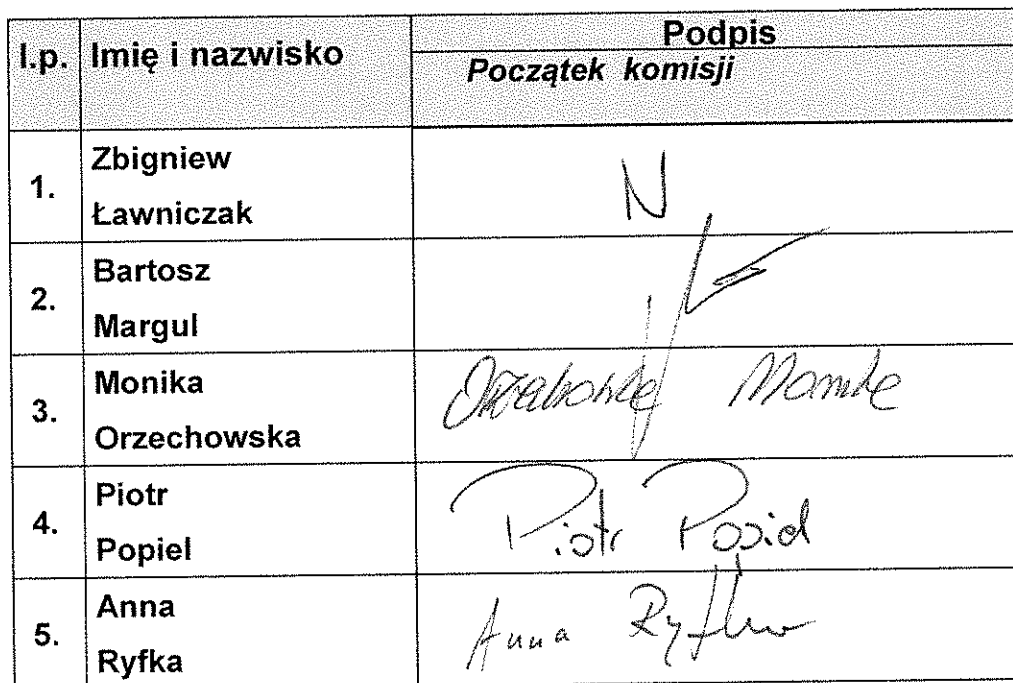 l.p. Imię i nazwisko Podpis
Początek komisji
1. Zbigniew
Ławniczak
N
2. Bartosz
Margul
3. Monika
Orzechowska
Monika
4. Piotr
Popiel
Piotr Popiel
5. Anna
Ryfka
Anna Ryfka